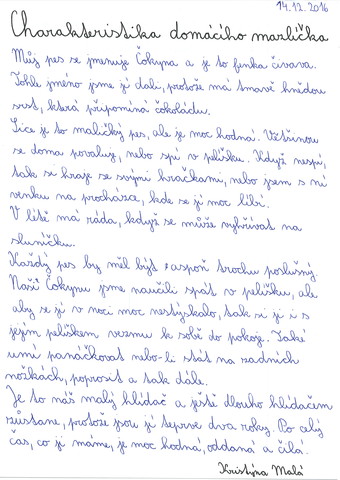 14.12.2016
Charakteristika domácího mazlíčka
Můj pes se jmenuje Čokyna a je to fenka čivava.
Tohle jméno jsme jí dali, protože má tmavě hnědou
srst, která připomíná čokoládu.
Sice je to maličký pes, ale je moc hodná. Většinou
se doma povaluje, nebo spí v pelíšku. Když nespí,
tak si hraje se svými hračkami, nebo jsem s ní
venku na procházce, kde se jí moc líbí.
V létě má ráda, když se může vyhřívat na
sluníčku.
Každý pes by měl být aspoň trochu poslušný.
Naši Čokynu jsme naučili spát v pelíšku, ale
aby se jí v noci moc nestýskalo, tak si jí i s
jejím pelíškem vezmu k sobě do pokoje. Také
umí panáčkovat nebo-li stát na zadních
nožkách, poprosit a tak dále.
Je to náš malý hlídač a ještě dlouho hlídačem
zůstane, protože jsou jí teprve dva roky. Po celý
čas, co ji máme, je moc hodná, oddaná a čilá.
Kristýna Malá